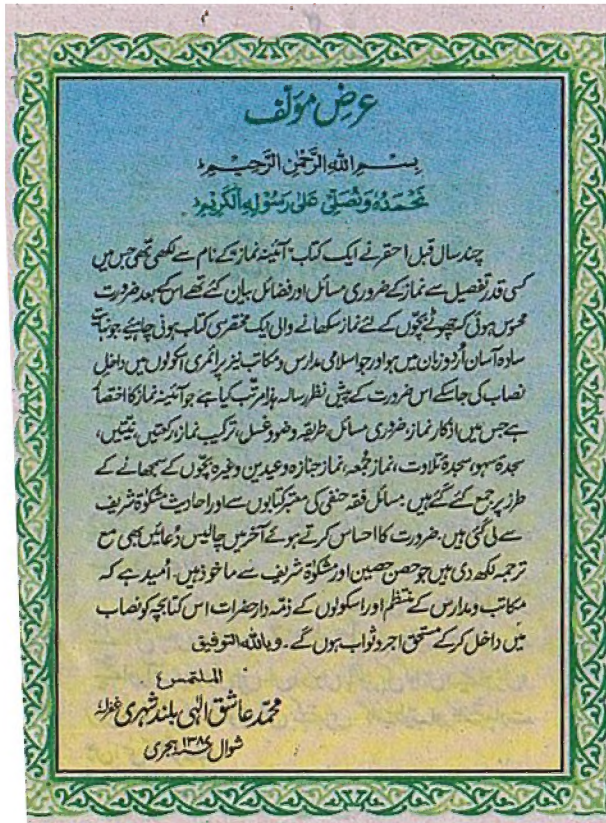 عرضِ مؤلّف
بِسْمِ اللهِ الرَّحْمٰنِ الرَّحِيْمِ
نَحْمَدُهٗ وَنُصَلِّيْ عَلٰى رَسُوْلِهِ الْكَرِيْمِ
چند سال قبل احقر نے ایک کتاب "آئینہ نماز" کے نام سے لکھی تھی جس میں
کسی قدر تفصیل سے نماز کے ضروری مسائل اور فضائل بیان کئے تھے اس کے بعد ضرورت
محسوس ہوئی کہ چھوٹے بچّوں کے لئے نماز سکھانے والی ایک مختصر سی کتاب ہونی چاہیئے جو نہایت
سادہ آسان اُردو زبان میں ہو اور جو اسلامی مدارس و مکاتب نیز پرائمری اسکولوں میں داخل
نصاب کی جا سکے اس ضرورت کے پیشِ نظر رسالہ ہذا مرتّب کیا ہے جو آئینہ نماز کا اختصار
ہے جس میں اذکار نماز، ضروری مسائل، طریقہ وضو و غسل، ترکیب نماز، رکعتیں، نیتیں،
سجدۂ سہو، سجدۂ تلاوت، نماز جمعہ، نماز جنازہ و عیدین وغیرہ بچّوں کے سمجھانے کے
طرز پر جمع کئے گئے ہیں۔ مسائل فقہ حنفی کی معتبر کتابوں سے اور احادیث مشکوٰۃ شریف
سے لی گئی ہیں۔ ضرورت کا احساس کرتے ہوئے آخر میں چالیس دُعائیں بھی مع
ترجمہ لکھ دی ہیں جو حصن حصین اور مشکوٰۃ شریف سے ماخوذ ہیں۔ اُمید ہے کہ
مکاتب و مدارس کے منتظم اور اسکولوں کے ذمّہ دار حضرات اس کتابچہ کو نصاب
میں داخل کر کے مستحق اجر و ثواب ہوں گے۔ وباللہ التوفیق
الملتمس
محمّد عاشق الٰہی بلند شہری غفرلہٗ
شوال ۱۳۸۷ ہجری